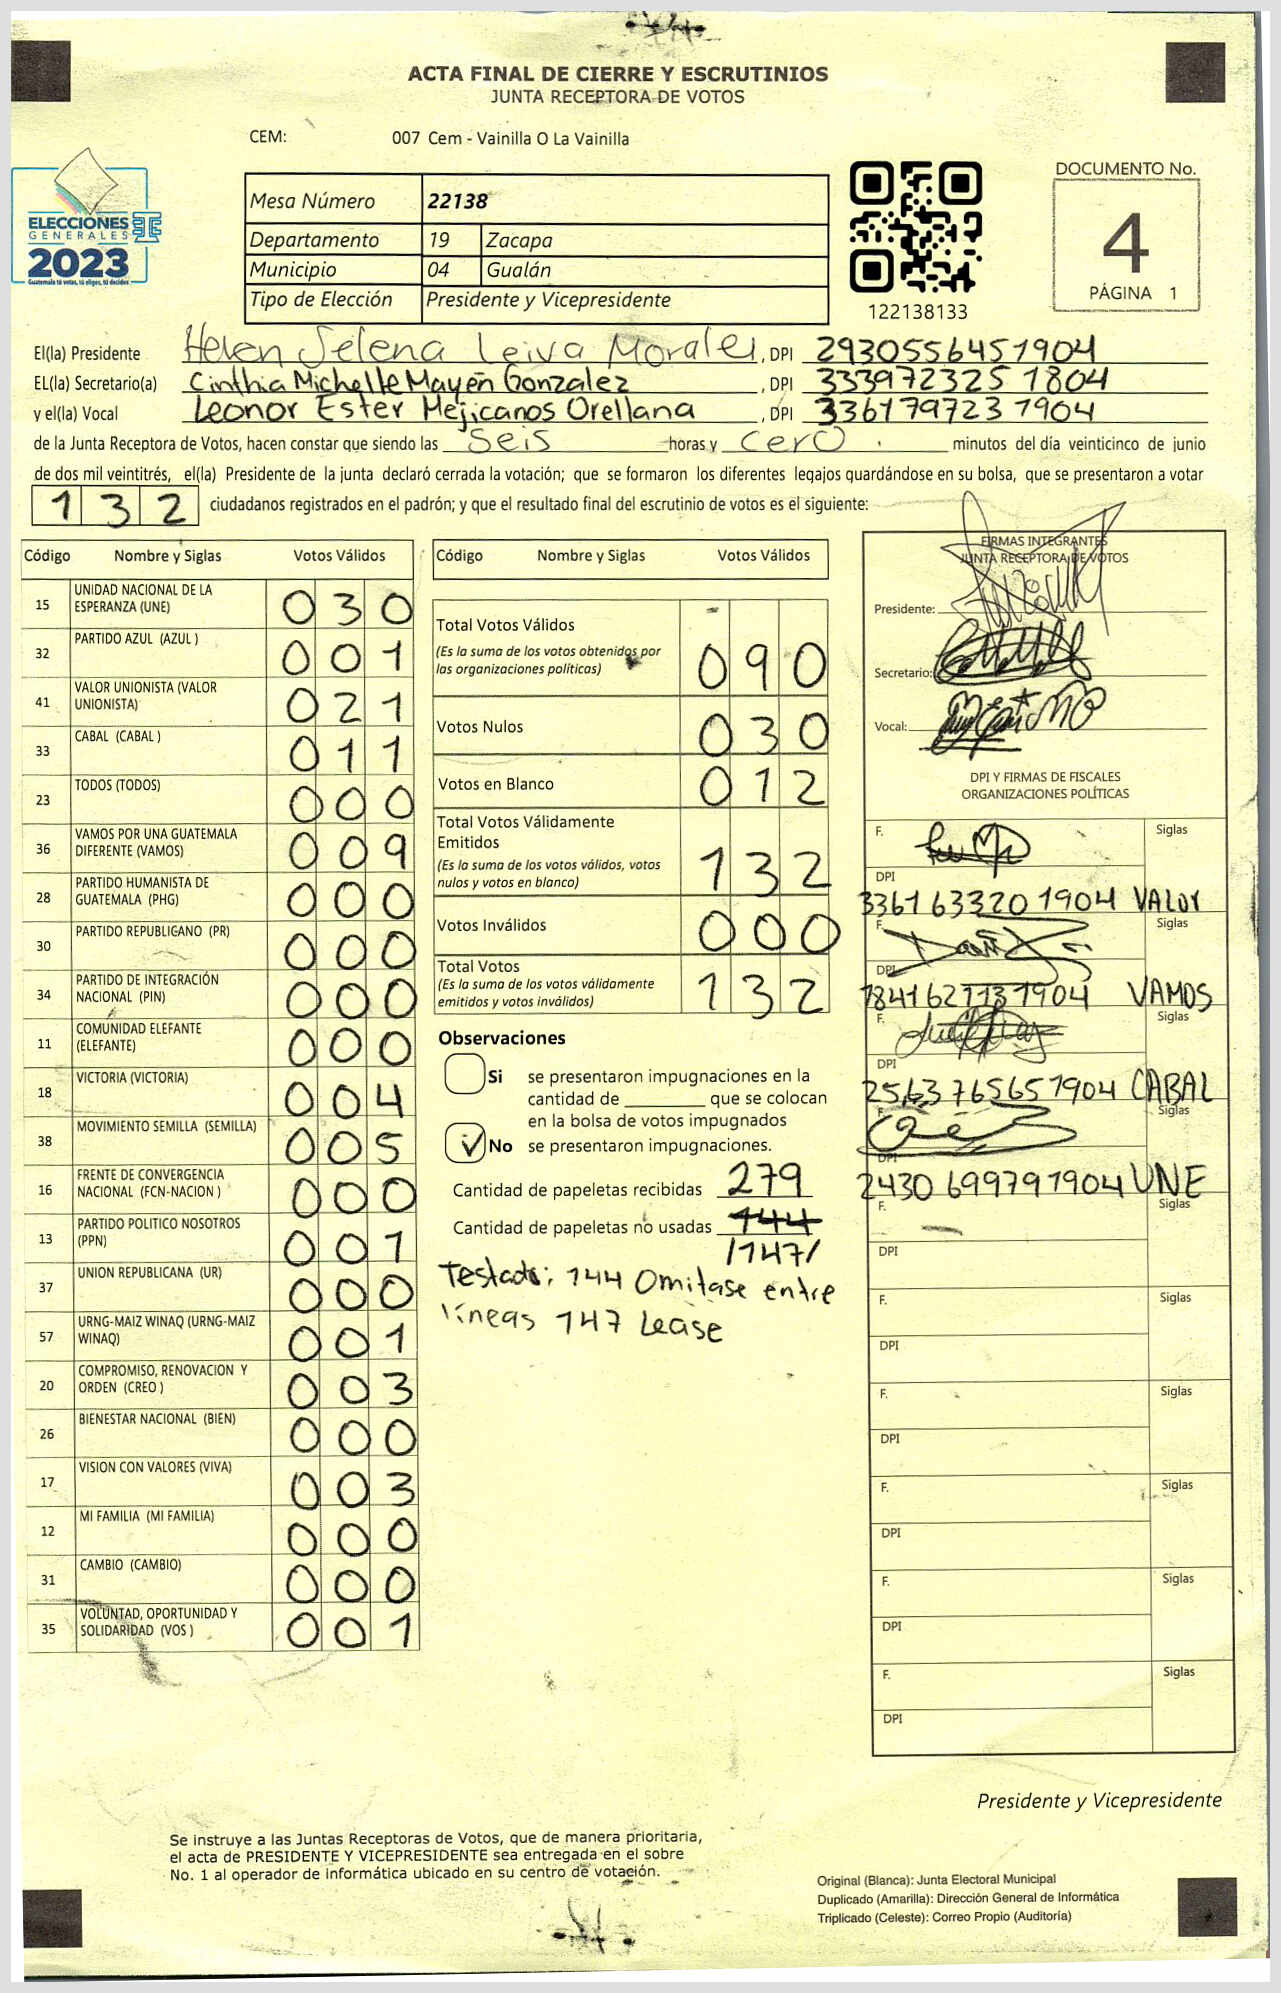 ACTA FINAL DE CIERRE Y ESCRUTINIOS
JUNTA RECEPTORA DE VOTOS
CEM: 007 Cem - Vainilla O La Vainilla
ELECCIONES
GENERALES
2023
Guatemala tú votas, tú eliges, tú decides
Mesa Número 22138
Departamento 19 Zacapa
Municipio 04 Gualán
Tipo de Elección Presidente y Vicepresidente
122138133
DOCUMENTO No.
4
PÁGINA 1
El(la) Presidente Helen Selena Leiva Morales, DPI 2930556451904
EL(la) Secretario(a) Cinthia Michelle Mayén Gonzalez, DPI 333972325 1804
y el(la) Vocal Leonor Ester Mejicanos Orellana, DPI 336179723 1904
de la Junta Receptora de Votos, hacen constar que siendo las seis horas y cero minutos del día veinticinco de junio
de dos mil veintitrés, el(la) Presidente de la junta declaró cerrada la votación; que se formaron los diferentes legajos guardándose en su bolsa, que se presentaron a votar
132 ciudadanos registrados en el padrón; y que el resultado final del escrutinio de votos es el siguiente:
Código Nombre y Siglas Votos Válidos
15 UNIDAD NACIONAL DE LA ESPERANZA (UNE) 030
32 PARTIDO AZUL (AZUL ) 001
41 VALOR UNIONISTA (VALOR UNIONISTA) 021
33 CABAL (CABAL ) 011
23 TODOS (TODOS) 000
36 VAMOS POR UNA GUATEMALA DIFERENTE (VAMOS) 009
28 PARTIDO HUMANISTA DE GUATEMALA (PHG) 000
30 PARTIDO REPUBLICANO (PR) 000
34 PARTIDO DE INTEGRACIÓN NACIONAL (PIN) 000
11 COMUNIDAD ELEFANTE (ELEFANTE) 000
18 VICTORIA (VICTORIA) 004
38 MOVIMIENTO SEMILLA (SEMILLA) 005
16 FRENTE DE CONVERGENCIA NACIONAL (FCN-NACION ) 000
13 PARTIDO POLITICO NOSOTROS (PPN) 001
37 UNION REPUBLICANA (UR) 000
57 URNG-MAIZ WINAQ (URNG-MAIZ WINAQ) 001
20 COMPROMISO, RENOVACION Y ORDEN (CREO ) 003
26 BIENESTAR NACIONAL (BIEN) 000
17 VISION CON VALORES (VIVA) 003
12 MI FAMILIA (MI FAMILIA) 000
31 CAMBIO (CAMBIO) 000
35 VOLUNTAD, OPORTUNIDAD Y SOLIDARIDAD (VOS ) 001
Código Nombre y Siglas Votos Válidos
Total Votos Válidos 090
(Es la suma de los votos obtenidos por
las organizaciones políticas)
Votos Nulos 030
Votos en Blanco 012
Total Votos Válidamente
Emitidos 132
(Es la suma de los votos válidos, votos
nulos y votos en blanco)
Votos Inválidos 000
Total Votos 132
(Es la suma de los votos válidamente
emitidos y votos inválidos)
Observaciones
Si se presentaron impugnaciones en la
cantidad de ________ que se colocan
en la bolsa de votos impugnados
No se presentaron impugnaciones.
Cantidad de papeletas recibidas 279
Cantidad de papeletas no usadas 144
/147/
Testado: 144 Omitase entre
líneas 147 Lease
FIRMAS INTEGRANTES
JUNTA RECEPTORA DE VOTOS
Presidente:
Secretario:
Vocal:
DPI Y FIRMAS DE FISCALES
ORGANIZACIONES POLÍTICAS
F. Siglas
DPI
3361633201904 VALOR
F. Siglas
DPI
VAMOS
F. Siglas
DPI
2563765651904 CABAL
F. Siglas
DPI
2430699791904 UNE
F. Siglas
DPI
F. Siglas
DPI
F. Siglas
DPI
F. Siglas
DPI
F. Siglas
DPI
F. Siglas
DPI
Presidente y Vicepresidente
Se instruye a las Juntas Receptoras de Votos, que de manera prioritaria,
el acta de PRESIDENTE Y VICEPRESIDENTE sea entregada en el sobre
No. 1 al operador de informática ubicado en su centro de votación.
Original (Blanca): Junta Electoral Municipal
Duplicado (Amarilla): Dirección General de Informática
Triplicado (Celeste): Correo Propio (Auditoría)